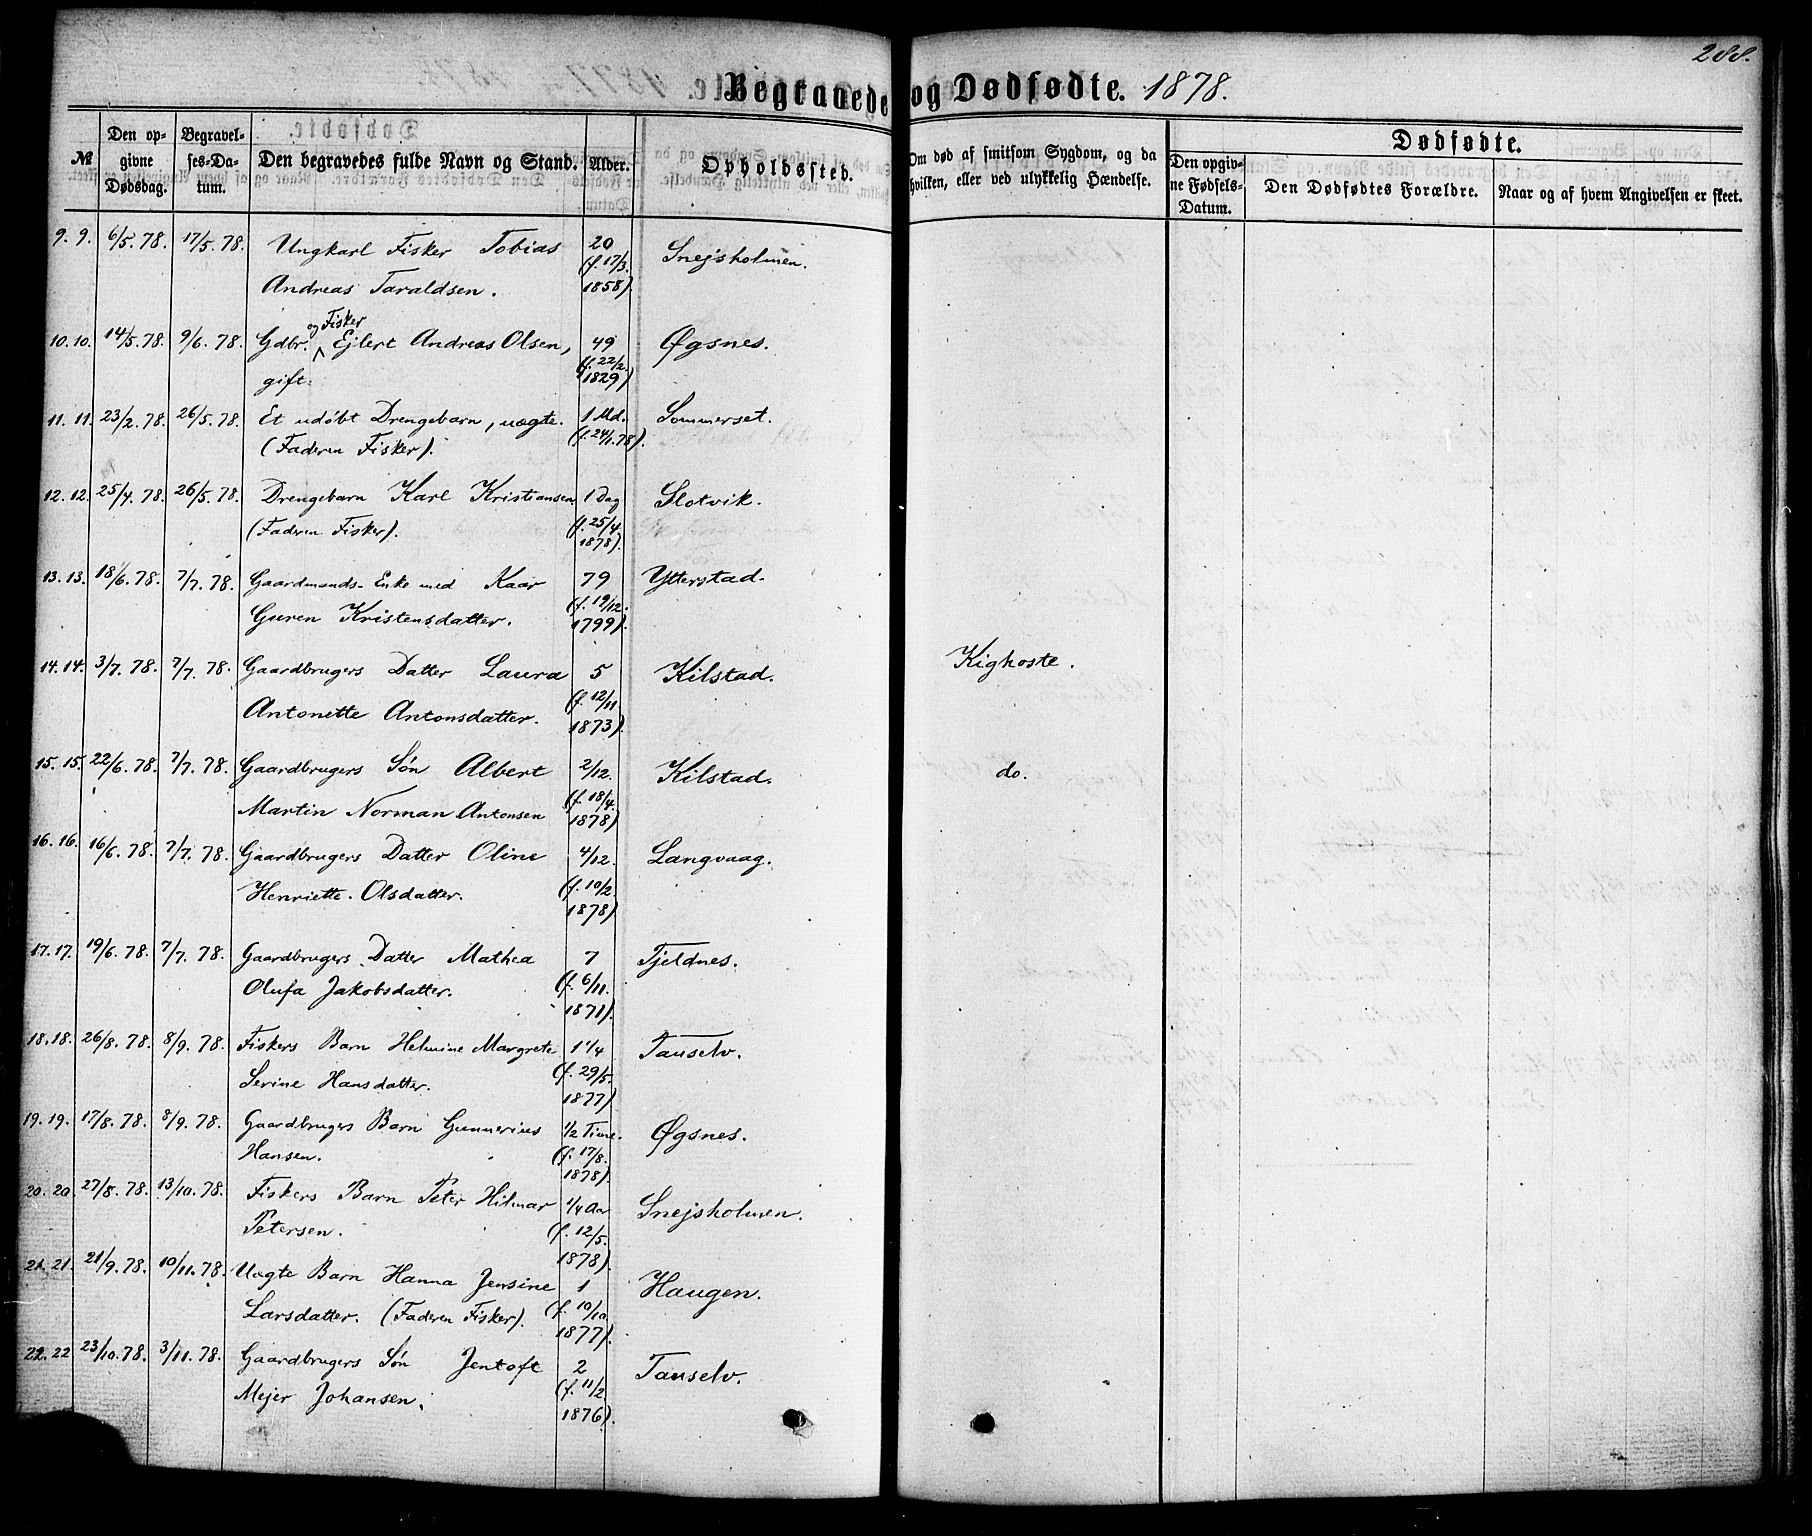 288.
Begravede og Dødfødte. 1878.
№
Den opgivne Dødsdag.
Begravelses-Datum.
Den begravedes fulde Navn og Stand.
Alder.
Opholdssted.
Om død af smitsom Sygdom, og da hvilken, eller ved ulykkelig Hændelse.
Dødfødte.
Den opgivne Fødsels-Datum.
Den Dødfødtes Forældre.
Naar og af hvem Angivelsen er skeet.
9. 9. 6/5. 78. 17/5. 78. Ungkarl Fisker Tobias 20 Snejsholmen.
Andreas Taraldsen. (f. 17/3. 1858).
og Fisker
10. 10. 14/5. 78. 9/6. 78. Gdbr. Ejlert Andreas Olsen, 49 Øgsnes.
gift. (f. 22/2. 1829)
11. 11. 23/2. 78. 26/5. 78. Et udøbt Drengebarn, uægte. 1 Md. Sommerset.
(Faderen Fisker). (f. 24/1. 78).
12. 12. 25/4. 78. 26/5. 78. Drengebarn Karl Kristiansen 1 Dag Slotvik.
(Faderen Fisker). (f. 25/4. 1878).
13. 13. 18/6. 78. 7/7. 78. Gaardmands-Enke med Kaar 79 Ytterstad.
Guren Kristensdatter. (f. 19/12. 1799).
14. 14. 3/7. 78. 7/7. 78. Gaardbrugers Datter Laura 5 Kilstad. Kighoste.
Antonette Antonsdatter. (f. 12/11 1873).
15. 15. 22/6. 78. 7/7. 78. Gaardbrugers Søn Albert 2/12. Kilstad. do.
Martin Norman Antonsen (f. 18/4. 1878)
16. 16. 16/6. 78. 7/7. 78. Gaardbrugers Datter Oline 4/12. Langvaag.
Henriette. Olsdatter. (f. 10/2. 1878)
17. 17. 19/6. 78. 7/7. 78. Gaardbrugers Datter Mathea 7 Tjeldnes.
Olufa Jakobsdatter. (f. 6/11. 1871).
18. 18. 26/8. 78. 8/9. 78. Fiskers Barn Helmine Margrete 1 1/4 Tauselv.
Serine Hansdatter. (f. 29/5. 1877)
19. 19. 17/8. 78. 8/9. 78. Gaardbrugers Barn Gunnerius 1/2 Time. Øgsnes.
Hansen. (f. 17/8. 1878)
20. 20. 27/8. 78. 13/10. 78. Fiskers Barn Peter Hilmar 1/4 Aar Snejsholmen.
Petersen. (f. 12/5. 1878).
21. 21. 21/9. 78. 10/11. 78. Uægte Barn Hanna Jensine 1 Haugen.
Larsdatter. (Faderen Fisker). (f. 10/10. 1877).
22. 22 23/10. 78. 3/11. 78. Gaardbrugers Søn Jentoft 2 Tauselv.
Mejer Johansen. (f. 11/2 1876).